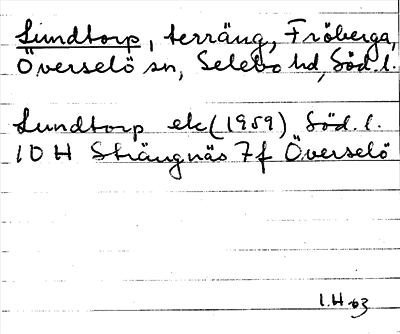 Lundtorp, terräng, Fröberga,
Överselö sn, Selebo hd, Söd. l.
Lundtorp ek (1959) Söd. l.
10 H Strängnäs 7f Överselö
I.H-63